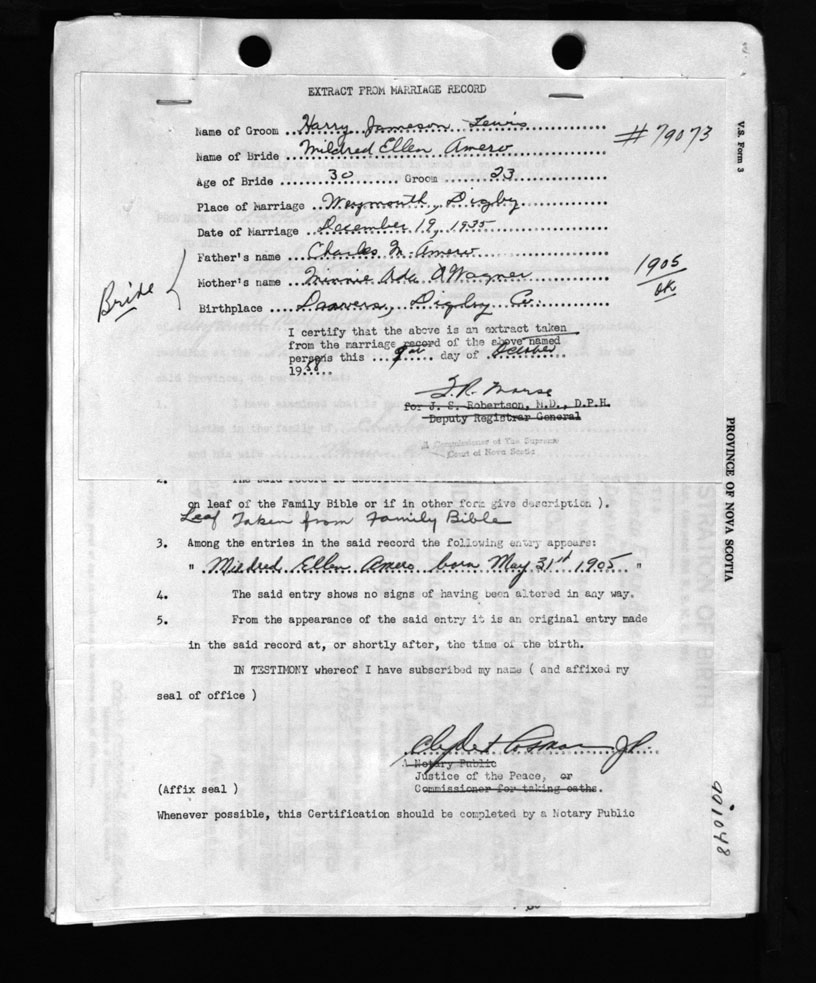 EXTRACT FROM MARRIAGE RECORD
Name of Groom ..Harry Jameson Lewis
#79073
Name of Bride ..Mildred Ellen Amero
Age of Bride ........30........ Groom ........23........
Place of Marriage ..Weymouth, Digby
Date of Marriage ..December 19, 1935
Father's name ..Charles M. Amero
Mother's name ..Minnie Ada Wagner
1905
ok
Bride
Birthplace .. Digby Co.
I certify that the above is an extract taken
from the marriage record of the above named
persons this ... day of October
1968
J.R. Morse
for J. S. Robertson, M.D., D.P.H.
Deputy Registrar General
A Commissioner of The Supreme
Court of Nova Scotia
2.
on leaf of the Family Bible or if in other form give description ).
Leaf Taken from Family Bible
3. Among the entries in the said record the following entry appears:
" Mildred Ellen Amero born May 31st 1905 "
4. The said entry shows no signs of having been altered in any way.
5. From the appearance of the said entry it is an original entry made
in the said record at, or shortly after, the time of the birth.
IN TESTIMONY whereof I have subscribed my name ( and affixed my
seal of office )
J.P.
A Notary Public
Justice of the Peace, or
(Affix seal ) Commissioner for taking oaths.
Whenever possible, this Certification should be completed by a Notary Public
V.S. Form 3
PROVINCE OF NOVA SCOTIA
901048